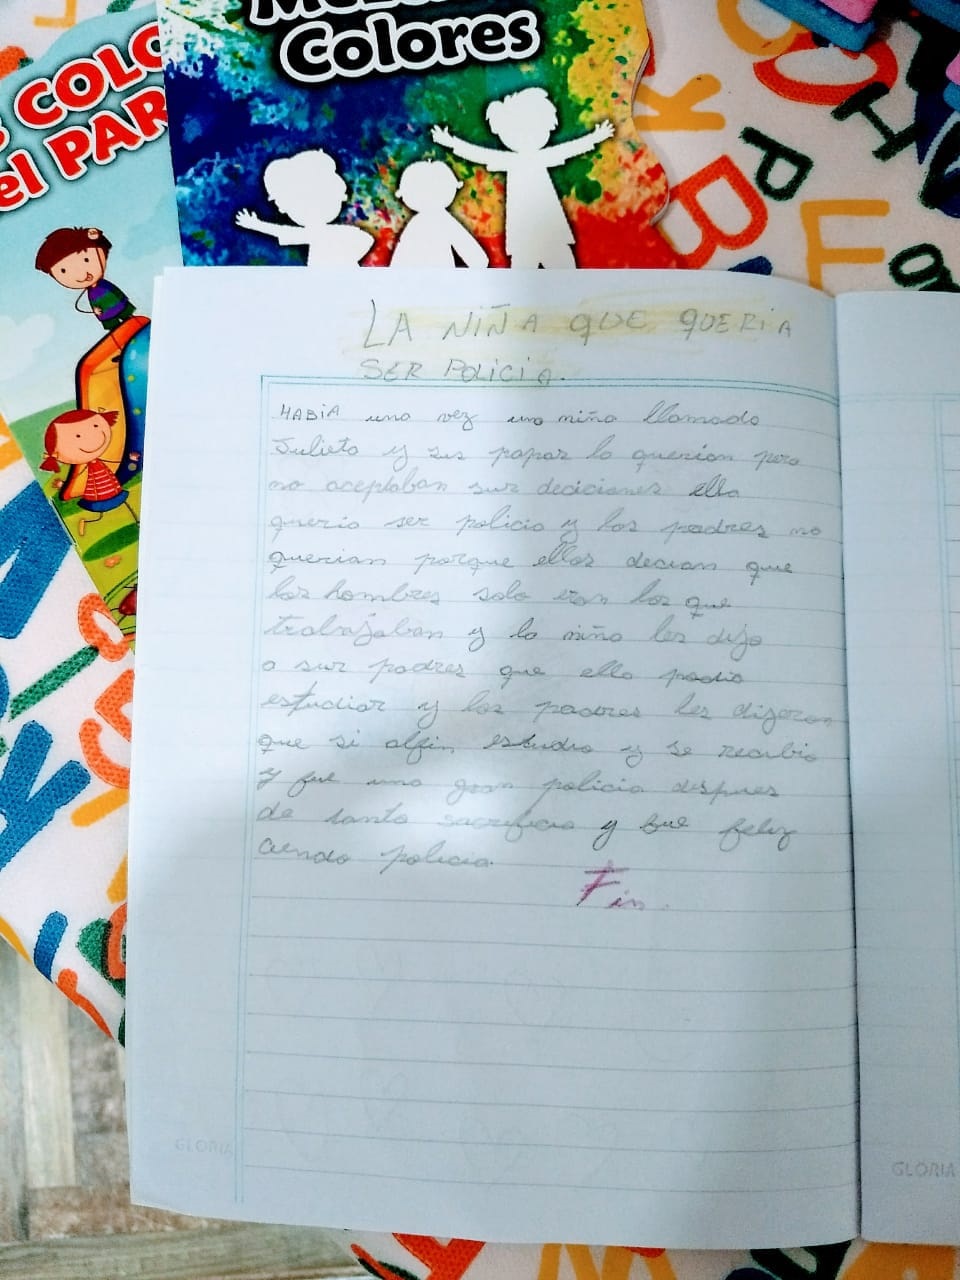 Colores
COLO
el PAR
LA NIÑA QUE QUERIA
SER POLICIA.
HABIA una vez una niña llamada
Julieta y sus papas la querian pero
no aceptaban sus deciciones ella
queria ser policia y los padres no
querian porque ellos decian que
los hombres solo eran los que
trabajaban y la niña les dijo
a sus padres que ella podia
estudiar y los padres les dijeron
que si alfin estudio y se recibio
y fue una gran policia despues
de tanto sacrificio y fue feliz
ciendo policia.
Fin.
GLORIA
GLORIA